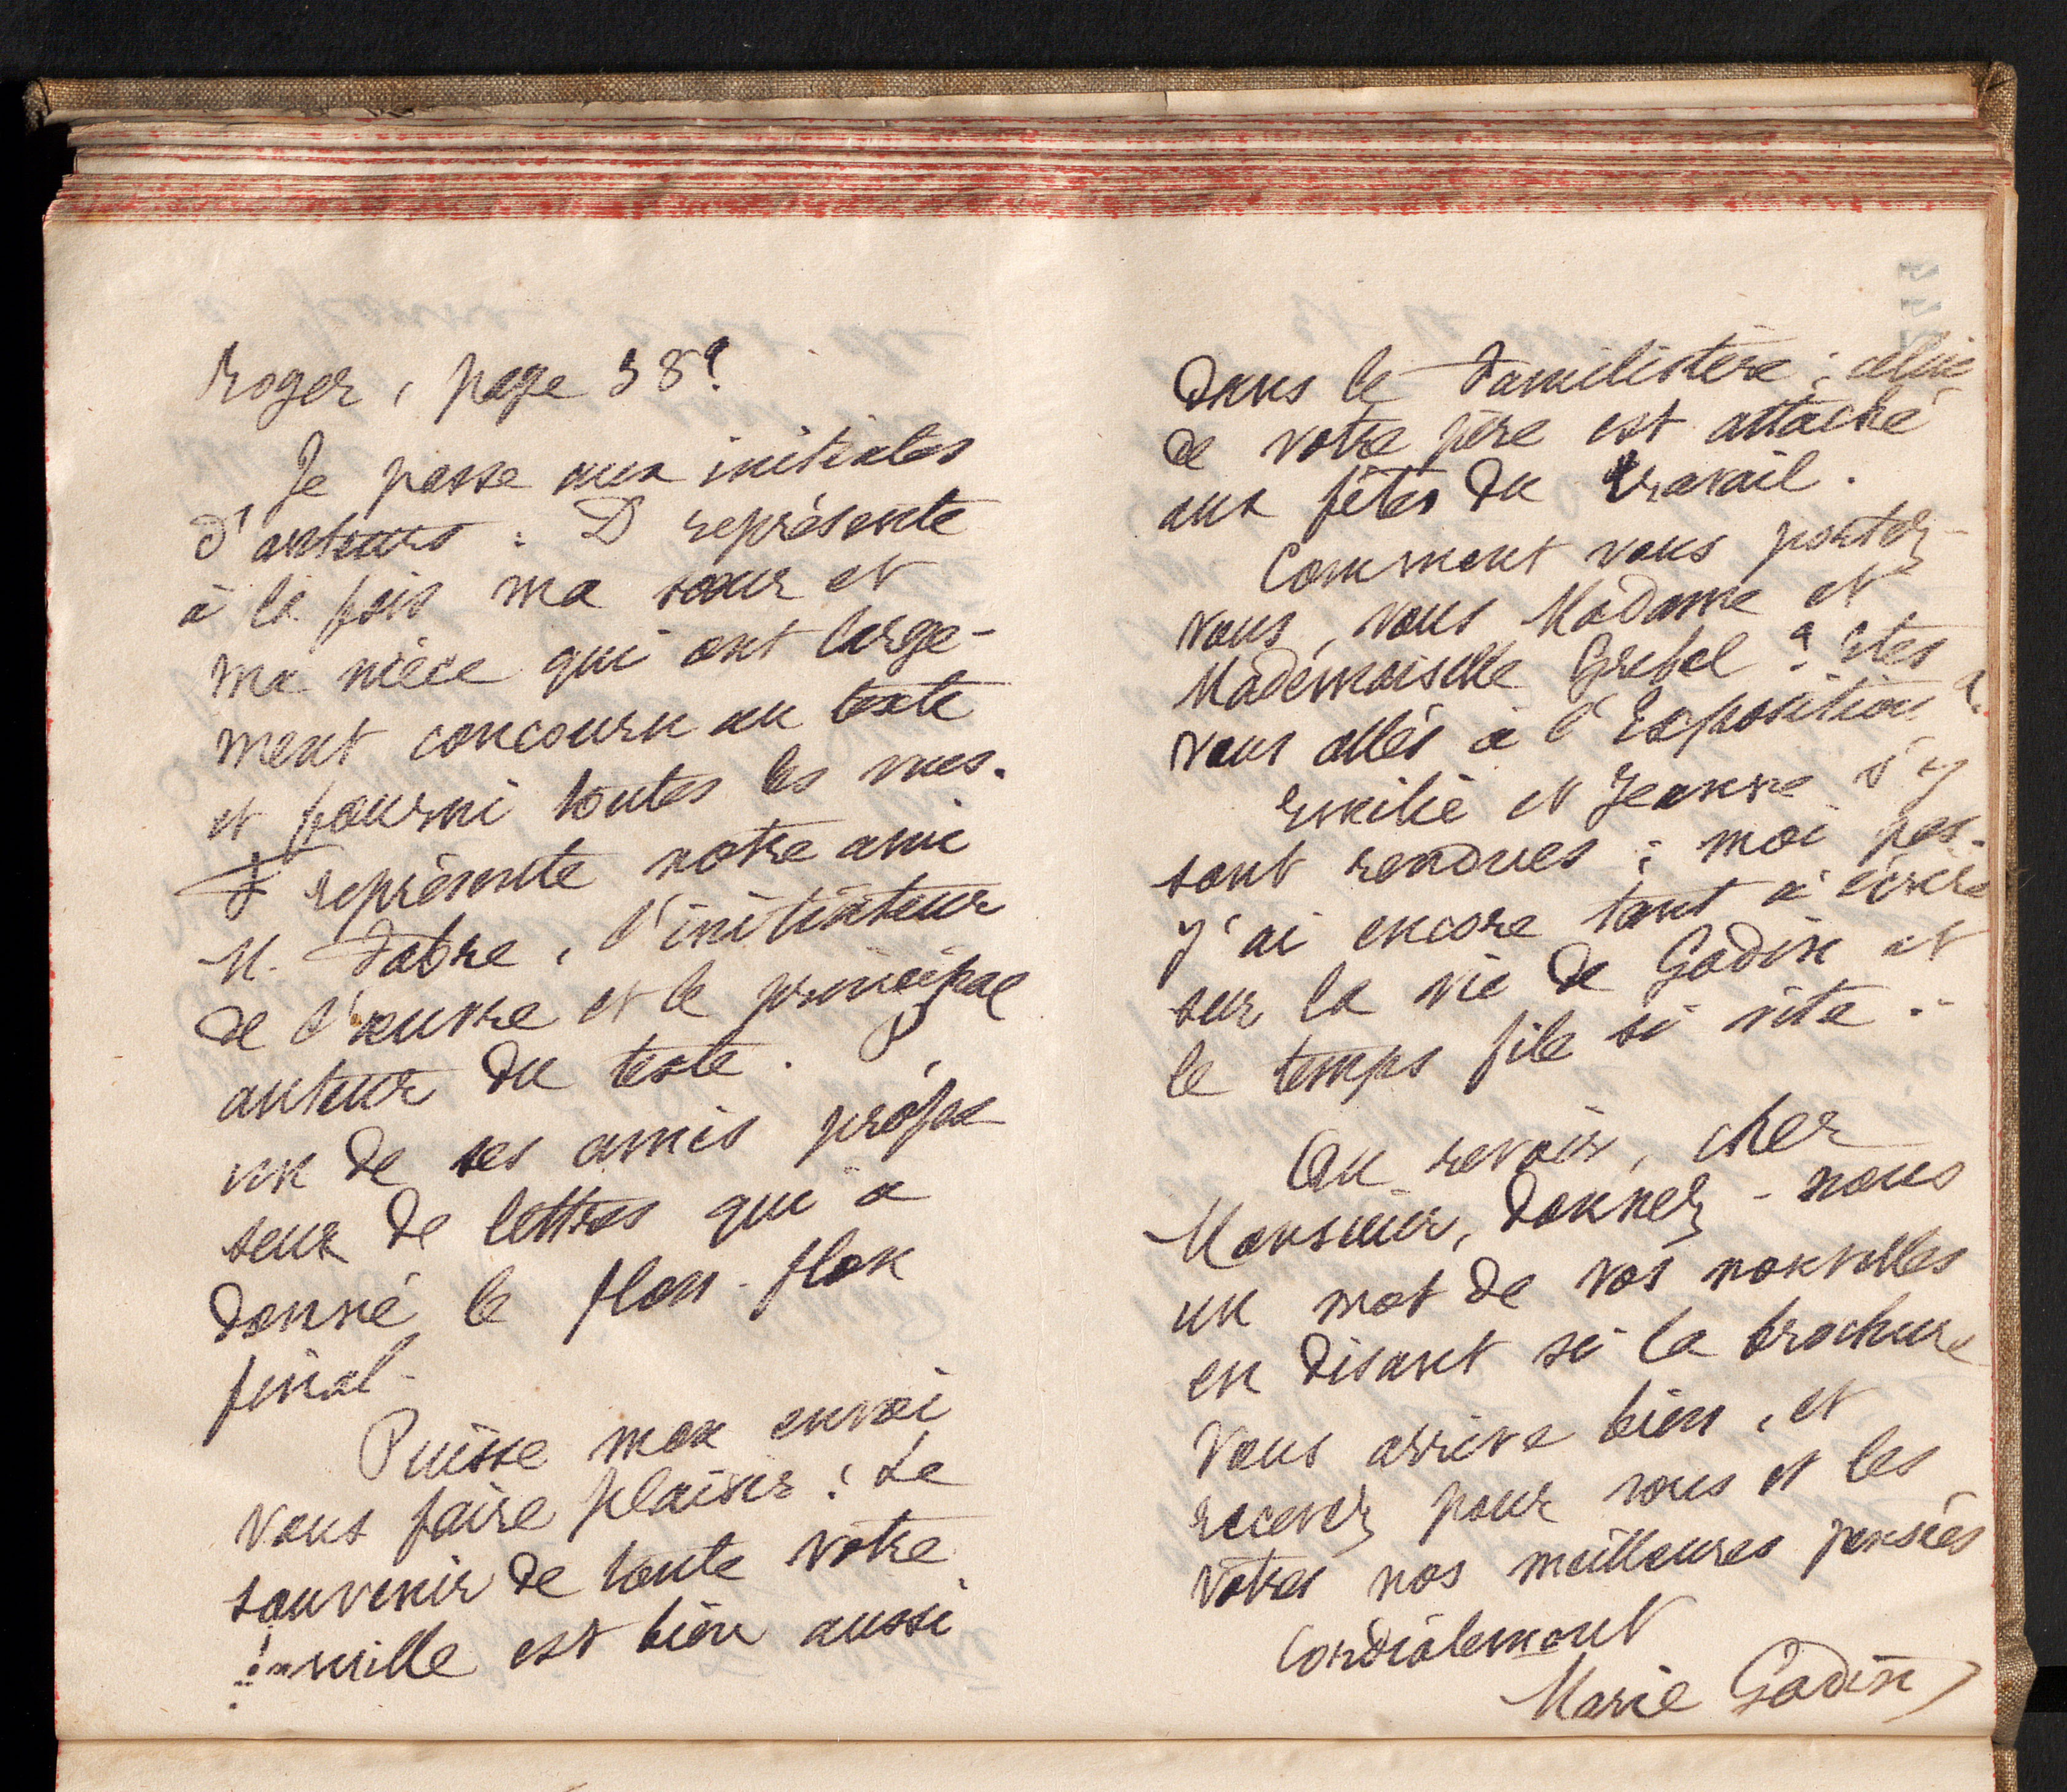 Roger, page 38?
Je passe aux initiales
d'auteurs : D représente
à la fois ma sœur et
ma nièce qui ont large-
ment concouru au texte
et fourni toutes les vues.
F représente notre ami
M. Fabre, l'initiateur
de l'œuvre et le principal
auteur du texte. P,
un de ses amis profes
seur de lettres qui a
donné le flon-flon
final.
Puisse mon envoi
vous faire plaisir ! Le
souvenir de toute votre
famille est bien aussi
dans le Familistère ; celui
de votre père est attaché
aux fêtes du travail.
Comment vous portez-
vous, vous Madame et
Mademoiselle Grebel ? Etes
vous allés à l'Exposition ?
Emilie et Jeanne s'y
sont rendues ; moi pas.
J'ai encore tant à écrire
sur la vie de Godin et
le temps file si vite.
Au revoir, cher
Monsieur, donnez-nous
un mot de vos nouvelles
en disant si la brochure
vous arrive bien, et
recevez pour vous et les
vôtres nos meilleures pensées
Cordialement
Marie Godin